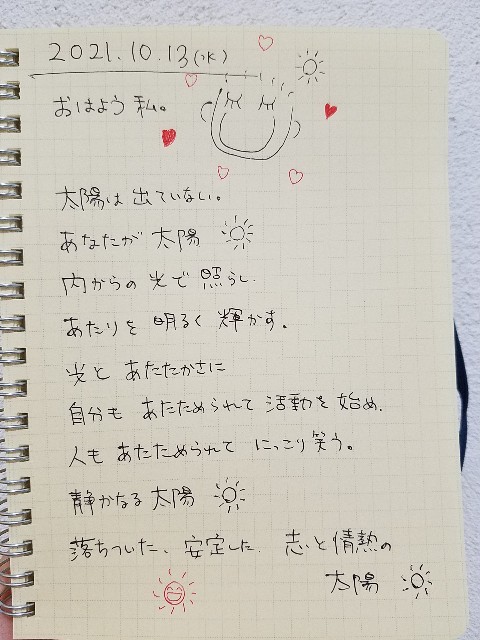 2021.10.13(水)
おはよう私。
太陽は出ていない。
あなたが太陽
内からの光で照らし、
あたりを明るく輝かす。
光とあたたかさに
自分もあたためられて活動を始め、
人もあたためられてにっこり笑う。
静かなる太陽
落ちついた、安定した、志と情熱の
太陽